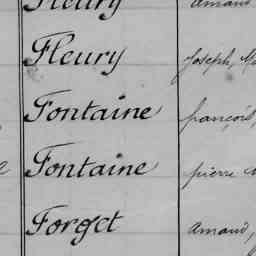 Fleury Amand
Fleury Joseph, Ma
Fontaine françois,
Fontaine pierre
Forget Amand,